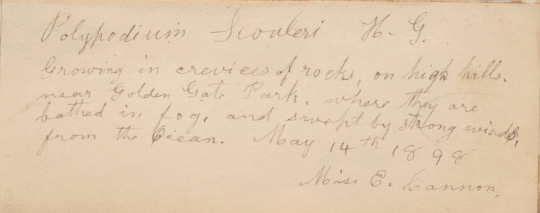 Polypodium Scouleri H. G.
Growing in crevices of rocks, on high hills.
near Golden Gate Park. where they are
bathed in fog, and swept by strong winds,
from the Ocean. May 14th 1898
Miss E. Cannon.